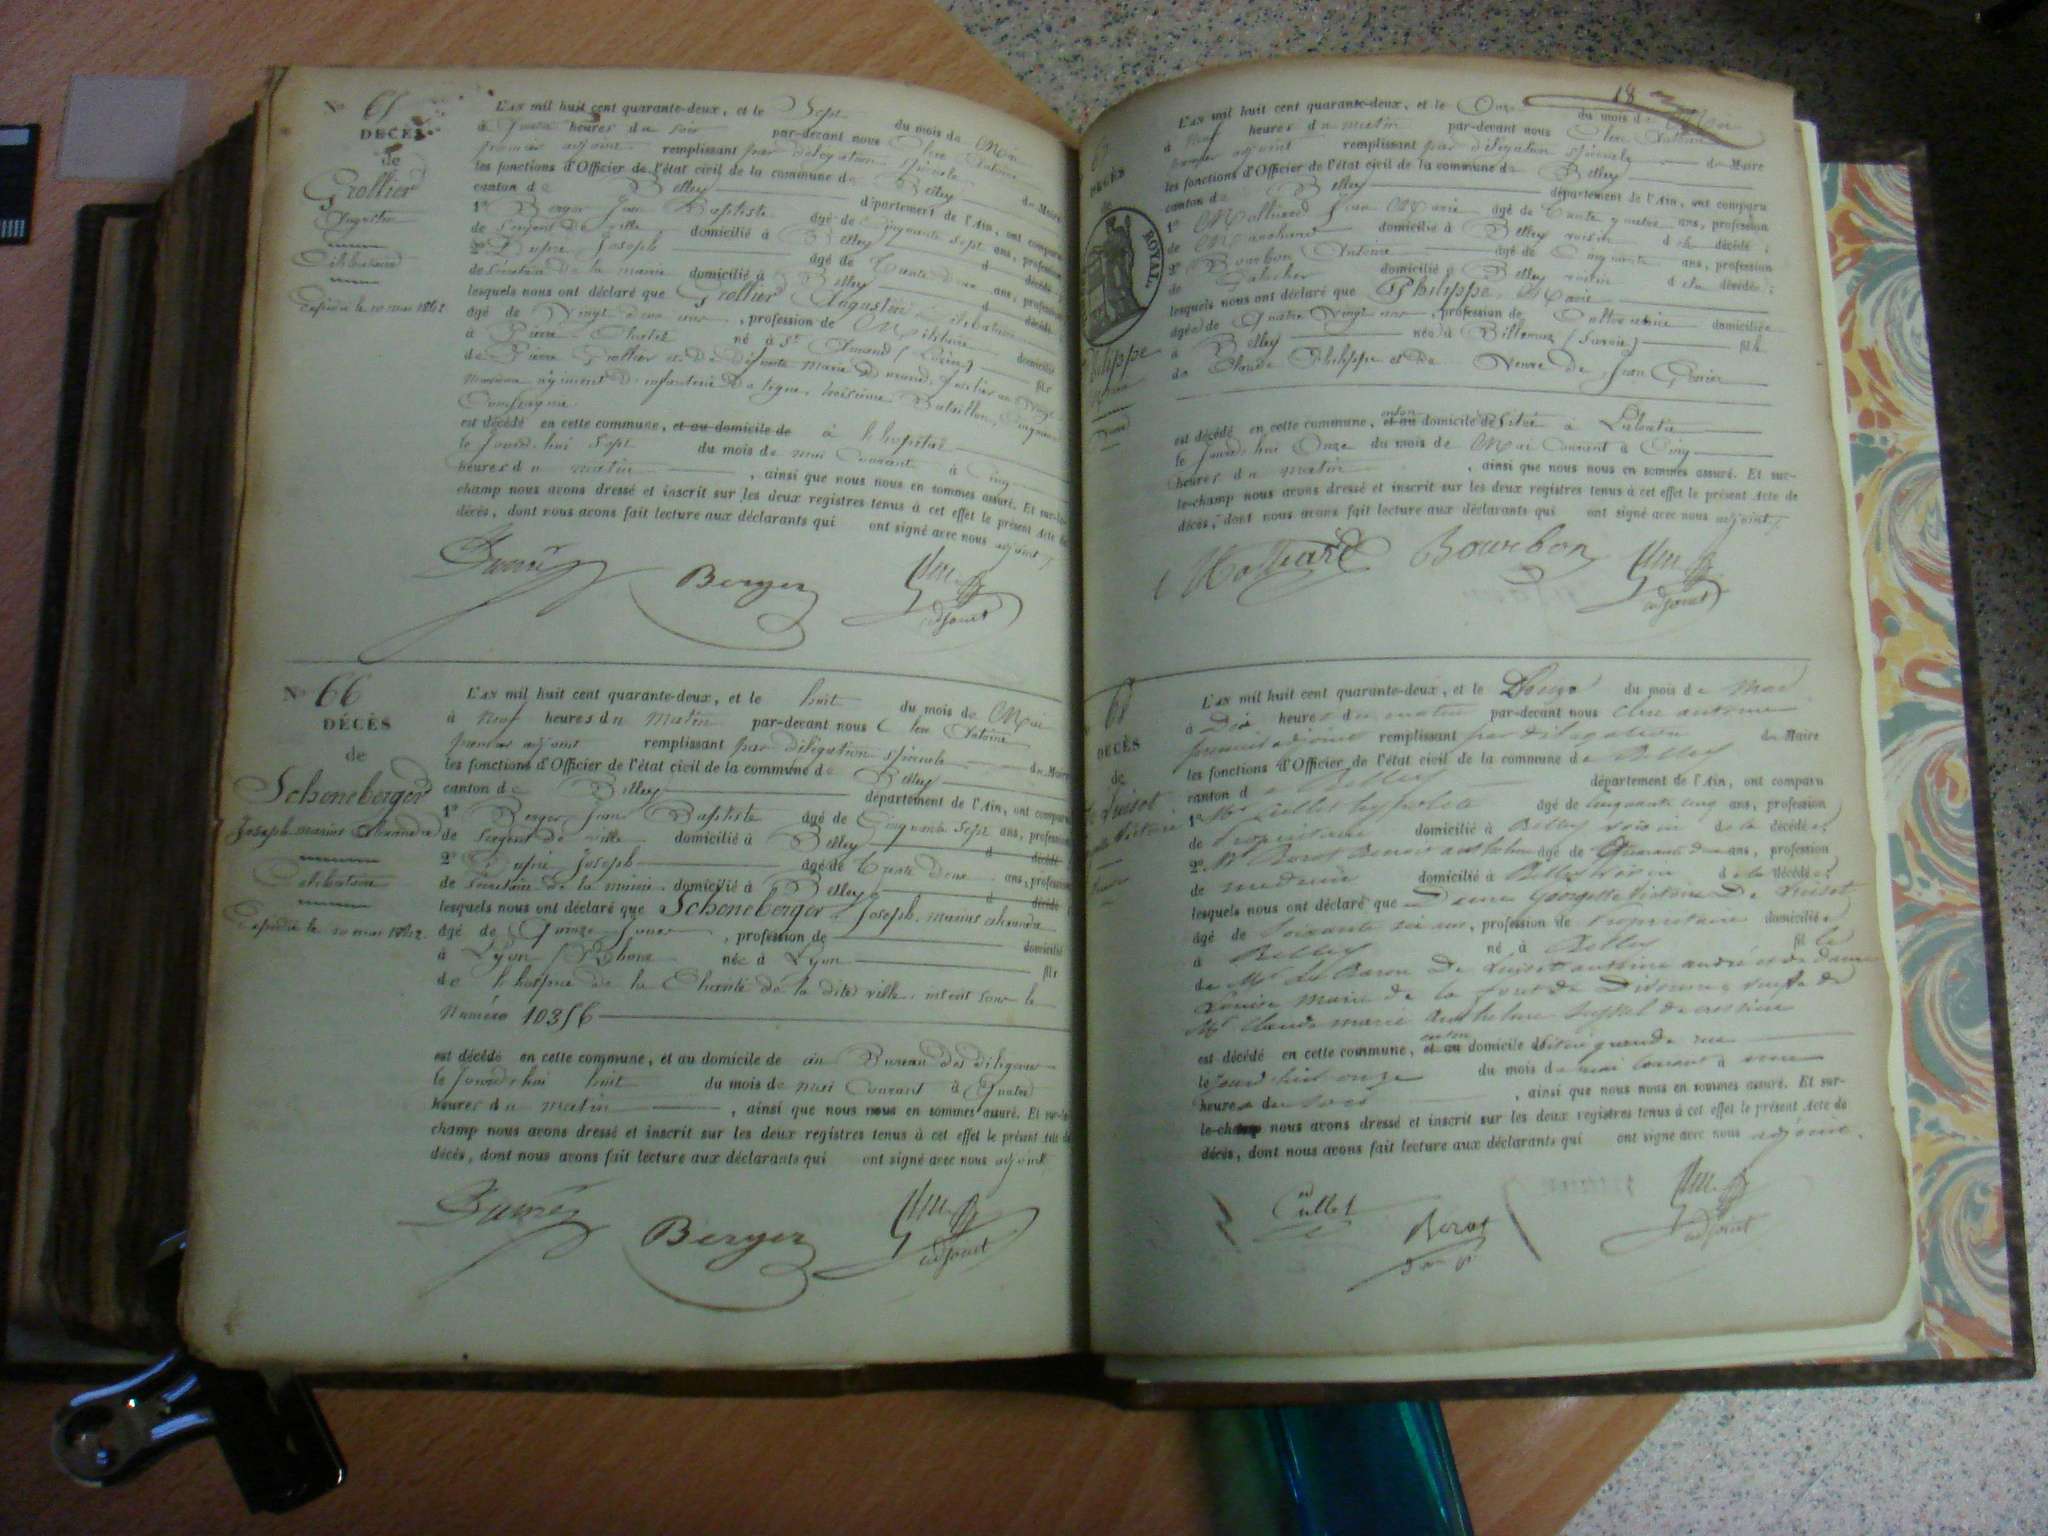 N° 65
DÉCÈS
de
Grollier
Augustin
Célibataire
Expédié le 10 mai 1842
L'AN mil huit cent quarante-deux, et le Sept du mois de Mai
à heures du soir par-devant nous Clerc Antoine
premier adjoint remplissant par délégation spéciale du Maire
les fonctions d'Officier de l'état civil de la commune de Belley
canton de Belley département de l'Ain, ont comparu
1° Berger Jean Baptiste âgé de Cinquante sept ans, profession
de Sergent de ville domicilié à Belley d décédé
2° Dupré Joseph âgé de Trente deux ans, profession
de Secrétaire de la mairie domicilié à Belley d décédé
lesquels nous ont déclaré que Grollier Augustin Célibataire
âgé de Vingt deux ans, profession de Militaire domicilié
à né à St Amand fils
de Pierre Grollier et de défunte Marie
régiment d'infanterie de ligne, troisième Bataillon,
Compagnie
est décédé en cette commune, et au domicile de à l'hopital
le Jourd'hui Sept du mois de mai Courant à Cinq
heures du matin, ainsi que nous nous en sommes assuré. Et sur-le-
champ nous avons dressé et inscrit sur les deux registres tenus à cet effet le présent Acte de
décès, dont nous avons fait lecture aux déclarants qui ont signé avec nous adjoint
Dupré Berger
adjoint
N° 66
DÉCÈS
de
Schoneberger
Joseph marius
Célibataire
Expédié le 10 mai 1842
L'AN mil huit cent quarante-deux, et le huit du mois de Mai
à Neuf heures du Matin par-devant nous Clerc Antoine
premier adjoint remplissant par délégation spéciale du Maire
les fonctions d'Officier de l'état civil de la commune de Belley
canton de Belley département de l'Ain, ont comparu
1° Berger Jean Baptiste âgé de Cinquante sept ans, profession
de Sergent de ville domicilié à Belley d décédé
2° Dupré Joseph âgé de Trente deux ans, profession
de Secrétaire de la mairie domicilié à Belley d décédé
lesquels nous ont déclaré que Schoneberger Joseph marius
âgé de Quinze Jours, profession de domicilié
à Lyon (Rhone né à Lyon fils
de l'hospice de la Charité de la dite ville, inscrit sous le
Numéro 10356
est décédé en cette commune, et au domicile de au Bureau des diligences
le Jourd'hui huit du mois de mai Courant à Quatre
heures du matin, ainsi que nous nous en sommes assuré. Et sur-le-
champ nous avons dressé et inscrit sur les deux registres tenus à cet effet le présent Acte de
décès, dont nous avons fait lecture aux déclarants qui ont signé avec nous adjoint
Dupré Berger
adjoint
18
67
DÉCÈS
ROYAL
Philippe
L'AN mil huit cent quarante-deux, et le Onze du mois de Mai
à Neuf heures du matin par-devant nous Clerc Antoine
premier adjoint remplissant par délégation spéciale du Maire
les fonctions d'Officier de l'état civil de la commune de Belley
canton de Belley département de l'Ain, ont comparu
1° Molliard Jean Marie âgé de Trente quatre ans, profession
de Marchand domicilié à Belley voisin d la décédée;
2° Bourbon Antoine âgé de Cinquante ans, profession
de domicilié à Belley voisin d la décédée;
lesquels nous ont déclaré que Philippe Marie
âgée de Quatre Vingt ans, profession de Cultivatrice domiciliée
à Belley née à (Savoie) fille
de Claude Philippe et de Veuve de Jean
est décédé en cette commune, et au domicile de Situé à
le Jourd'hui Onze du mois de Mai Courant à Cinq
heures du matin, ainsi que nous nous en sommes assuré. Et sur-
le-champ nous avons dressé et inscrit sur les deux registres tenus à cet effet le présent Acte de
décès, dont nous avons fait lecture aux déclarants qui ont signé avec nous adjoint
Molliard Bourbon
adjoint
68
DÉCÈS
de
Luiset
L'AN mil huit cent quarante-deux, et le Douze du mois de Mai
à Dix heures du matin par-devant nous Clerc antoine
premier adjoint remplissant par délégation du Maire
les fonctions d'Officier de l'état civil de la commune de Belley
canton d e Belley département de l'Ain, ont comparu
1° Mr Cullet hypolite âgé de cinquante cinq ans, profession
de Propriétaire domicilié à Belley voisin de la décédée;
2° Mr âgé de quarante ans, profession
de medecin domicilié à Belley voisin d la décédée;
lesquels nous ont déclaré que Dame Victoire De Luiset
âgé de Soixante six ans, profession de Propriétaire domiciliée
à Belley né à Belley fille
de Mr Le Baron De Luiset antoine andré et de dame
Louise Marie de la veuve de
Mr Claude marie
est décédé en cette commune, et au domicile de grande rue
le jourd'hui onze du mois de mai courant à onze
heures du soir, ainsi que nous nous en sommes assuré. Et sur-
le-champ nous avons dressé et inscrit sur les deux registres tenus à cet effet le présent Acte de
décès, dont nous avons fait lecture aux déclarants qui ont signé avec nous adjoint.
Cullet
adjoint